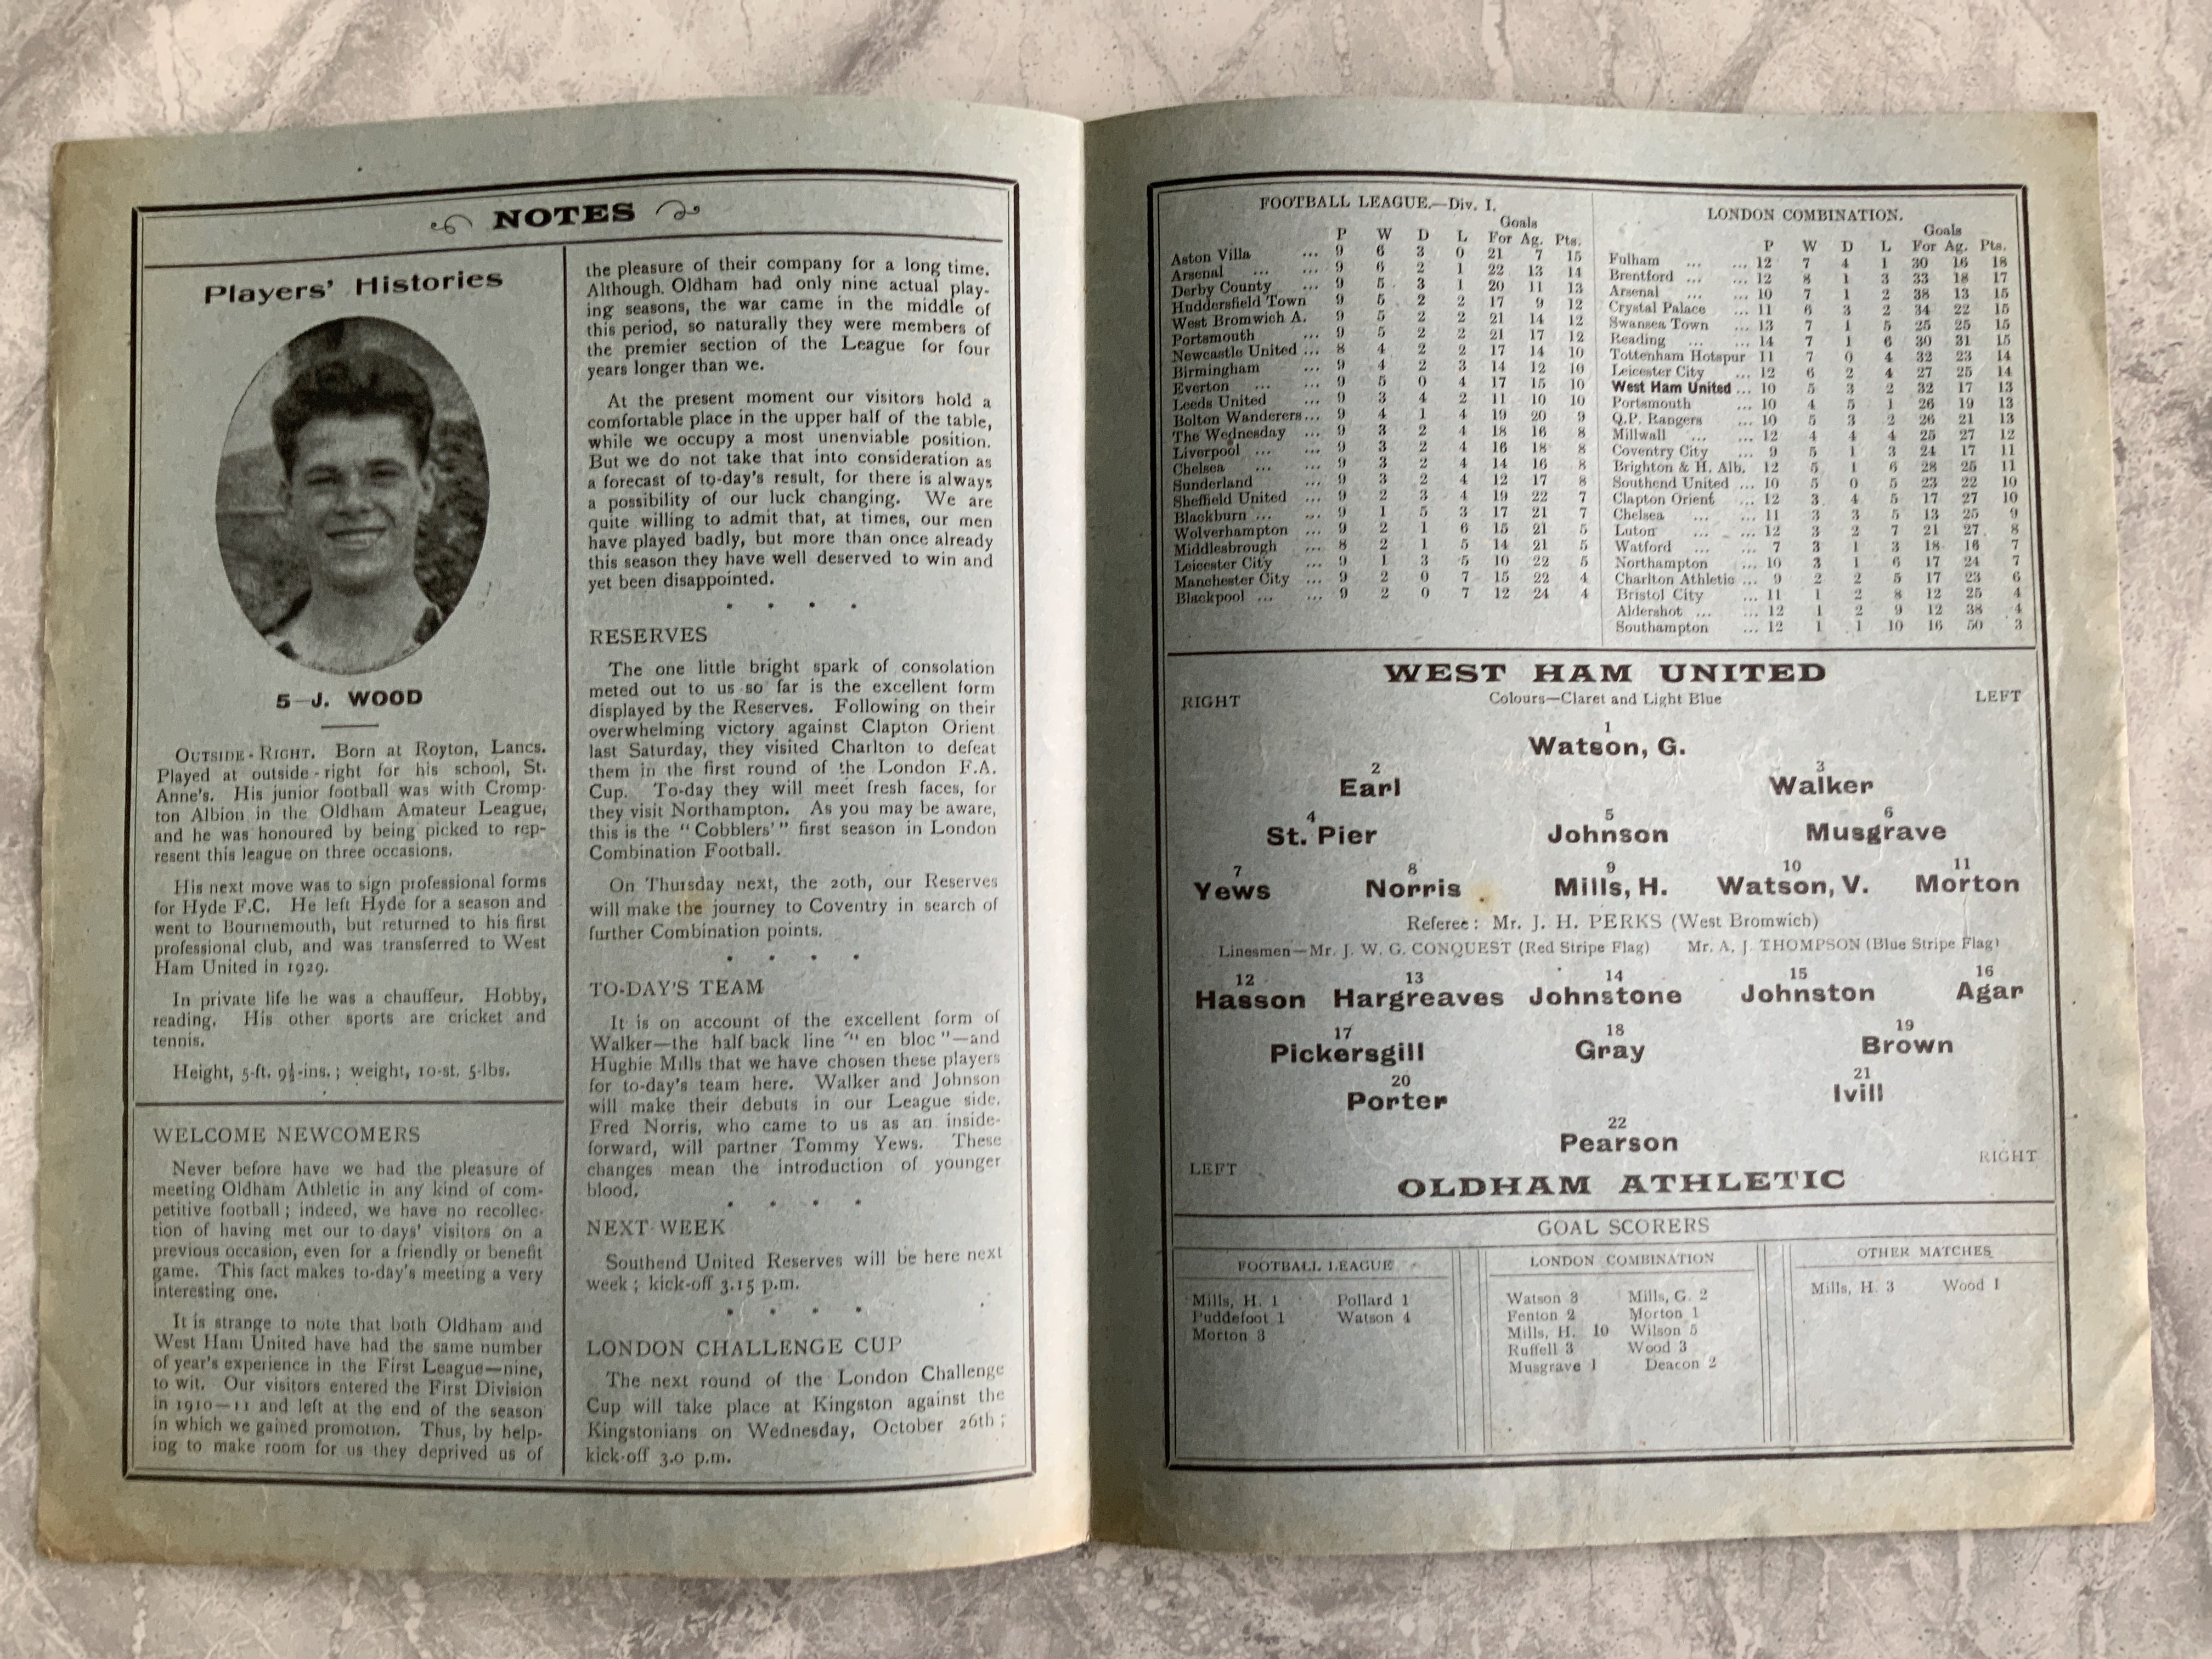 NOTES
Players' Histories
5—J. WOOD
OUTSIDE-RIGHT. Born at Royton, Lancs.
Played at outside-right for his school, St.
Anne's. His junior football was with Cromp-
ton Albion in the Oldham Amateur League,
and he was honoured by being picked to rep-
resent this league on three occasions.
His next move was to sign professional forms
for Hyde F.C. He left Hyde for a season and
went to Bournemouth, but returned to his first
professional club, and was transferred to West
Ham United in 1929.
In private life he was a chauffeur. Hobby,
reading. His other sports are cricket and
tennis.
Height, 5-ft. 9½-ins.; weight, 10-st. 5-lbs.
WELCOME NEWCOMERS
Never before have we had the pleasure of
meeting Oldham Athletic in any kind of com-
petitive football; indeed, we have no recollec-
tion of having met our to-days' visitors on a
previous occasion, even for a friendly or benefit
game. This fact makes to-day's meeting a very
interesting one.
It is strange to note that both Oldham and
West Ham United have had the same number
of year's experience in the First League—nine,
to wit. Our visitors entered the First Division
in 1910—11 and left at the end of the season
in which we gained promotion. Thus, by help-
ing to make room for us they deprived us of
the pleasure of their company for a long time.
Although. Oldham had only nine actual play-
ing seasons, the war came in the middle of
this period, so naturally they were members of
the premier section of the League for four
years longer than we.
At the present moment our visitors hold a
comfortable place in the upper half of the table,
while we occupy a most unenviable position.
But we do not take that into consideration as
a forecast of to-day's result, for there is always
a possibility of our luck changing. We are
quite willing to admit that, at times, our men
have played badly, but more than once already
this season they have well deserved to win and
yet been disappointed.
RESERVES
The one little bright spark of consolation
meted out to us so far is the excellent form
displayed by the Reserves. Following on their
overwhelming victory against Clapton Orient
last Saturday, they visited Charlton to defeat
them in the first round of the London F.A.
Cup. To-day they will meet fresh faces, for
they visit Northampton. As you may be aware,
this is the "Cobblers'" first season in London
Combination Football.
On Thursday next, the 20th, our Reserves
will make the journey to Coventry in search of
further Combination points.
TO-DAY'S TEAM
It is on account of the excellent form of
Walker—the half-back line "en bloc"—and
Hughie Mills that we have chosen these players
for to-day's team here. Walker and Johnson
will make their debuts in our League side.
Fred Norris, who came to us as an inside-
forward, will partner Tommy Yews. These
changes mean the introduction of younger
blood.
NEXT WEEK
Southend United Reserves will be here next
week; kick-off 3.15 p.m.
LONDON CHALLENGE CUP
The next round of the London Challenge
Cup will take place at Kingston against the
Kingstonians on Wednesday, October 26th;
kick-off 3.0 p.m.
FOOTBALL LEAGUE.—Div. I.
Goals
P W D L For Ag. Pts.
Aston Villa ... 9 6 3 0 21 7 15
Arsenal ... ... 9 6 2 1 22 13 14
Derby County ... 9 5 3 1 20 11 13
Huddersfield Town 9 5 2 2 17 9 12
West Bromwich A. 9 5 2 2 21 14 12
Portsmouth ... 9 5 2 2 21 17 12
Newcastle United ... 8 4 2 2 17 14 10
Birmingham ... 9 4 2 3 14 12 10
Everton ... ... 9 5 0 4 17 15 10
Leeds United ... 9 3 4 2 11 10 10
Bolton Wanderers... 9 4 1 4 19 20 9
The Wednesday ... 9 3 2 4 18 16 8
Liverpool ... ... 9 3 2 4 16 18 8
Chelsea ... ... 9 3 2 4 14 16 8
Sunderland ... 9 3 2 4 12 17 8
Sheffield United ... 9 2 3 4 19 22 7
Blackburn ... ... 9 1 5 3 17 21 7
Wolverhampton ... 9 2 1 6 15 21 5
Middlesbrough ... 8 2 1 5 14 21 5
Leicester City ... 9 1 3 5 10 22 5
Manchester City ... 9 2 0 7 15 22 4
Blackpool ... ... 9 2 0 7 12 24 4
LONDON COMBINATION.
Goals
P W D L For Ag. Pts.
Fulham ... ... 12 7 4 1 30 16 18
Brentford ... ... 12 8 1 3 33 18 17
Arsenal ... ... 10 7 1 2 38 13 15
Crystal Palace ... 11 6 3 2 34 22 15
Swansea Town ... 13 7 1 5 25 25 15
Reading ... ... 14 7 1 6 30 31 15
Tottenham Hotspur 11 7 0 4 32 23 14
Leicester City ... 12 6 2 4 27 25 14
West Ham United ... 10 5 3 2 32 17 13
Portsmouth ... 10 4 5 1 26 19 13
Q.P. Rangers ... 10 5 3 2 26 21 13
Millwall ... ... 12 4 4 4 25 27 12
Coventry City ... 9 5 1 3 24 17 11
Brighton & H. Alb. 12 5 1 6 28 25 11
Southend United ... 10 5 0 5 23 22 10
Clapton Orient ... 12 3 4 5 17 27 10
Chelsea ... ... 11 3 3 5 13 25 9
Luton ... ... 12 3 2 7 21 27 8
Watford ... ... 7 3 1 3 18 16 7
Northampton ... 10 3 1 6 17 24 7
Charlton Athletic ... 9 2 2 5 17 23 6
Bristol City ... 11 1 2 8 12 25 4
Aldershot ... ... 12 1 2 9 12 38 4
Southampton ... 12 1 1 10 16 50 3
WEST HAM UNITED
RIGHT Colours—Claret and Light Blue LEFT
1
Watson, G.
2 3
Earl Walker
4 5 6
St. Pier Johnson Musgrave
7 8 9 10 11
Yews Norris Mills, H. Watson, V. Morton
Referee: Mr. J. H. PERKS (West Bromwich)
Linesmen—Mr. J. W. G. CONQUEST (Red Stripe Flag) Mr. A. J. THOMPSON (Blue Stripe Flag)
12 13 14 15 16
Hasson Hargreaves Johnstone Johnston Agar
17 18 19
Pickersgill Gray Brown
20 21
Porter Ivill
22
Pearson
LEFT RIGHT
OLDHAM ATHLETIC
GOAL SCORERS
FOOTBALL LEAGUE
Mills, H. 1 Pollard 1
Puddefoot 1 Watson 4
Morton 3
LONDON COMBINATION
Watson 8 Mills, G. 2
Fenton 2 Morton 1
Mills, H. 10 Wilson 5
Ruffell 3 Wood 3
Musgrave 1 Deacon 2
OTHER MATCHES
Mills, H. 3 Wood 1